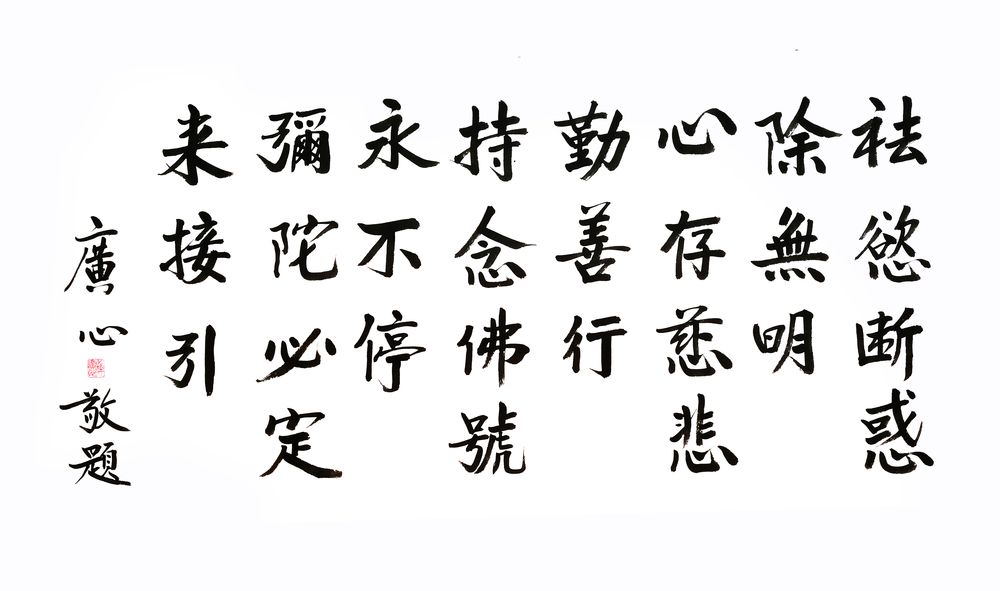 祛慾断惑
除無明
心存慈悲
勤善行
持念佛號
永不停
彌陀必定
来接引
廣心敬題